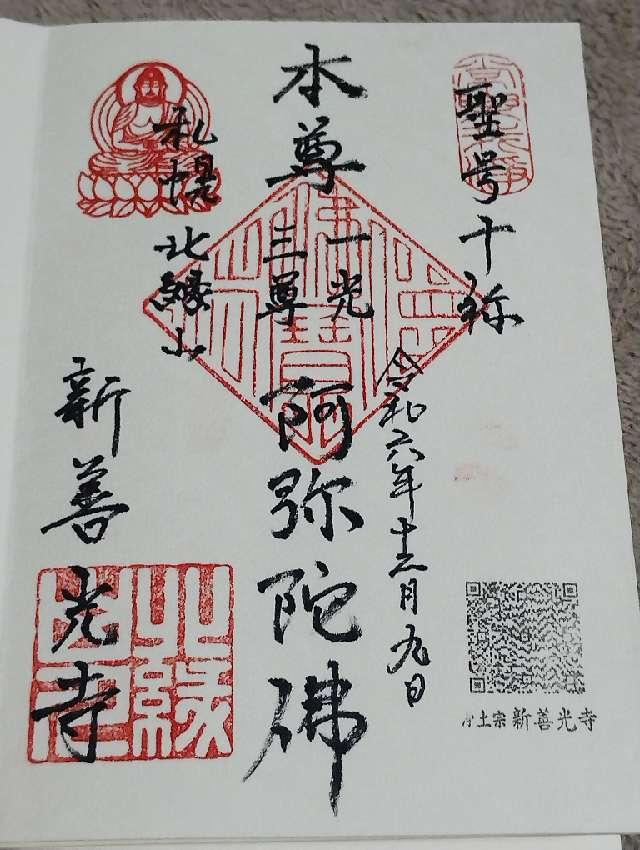 聖号十称
令和六年十二月九日
本尊
一光
三尊
阿弥陀佛
札幌
北縁山
新善光寺
浄土宗 新善光寺